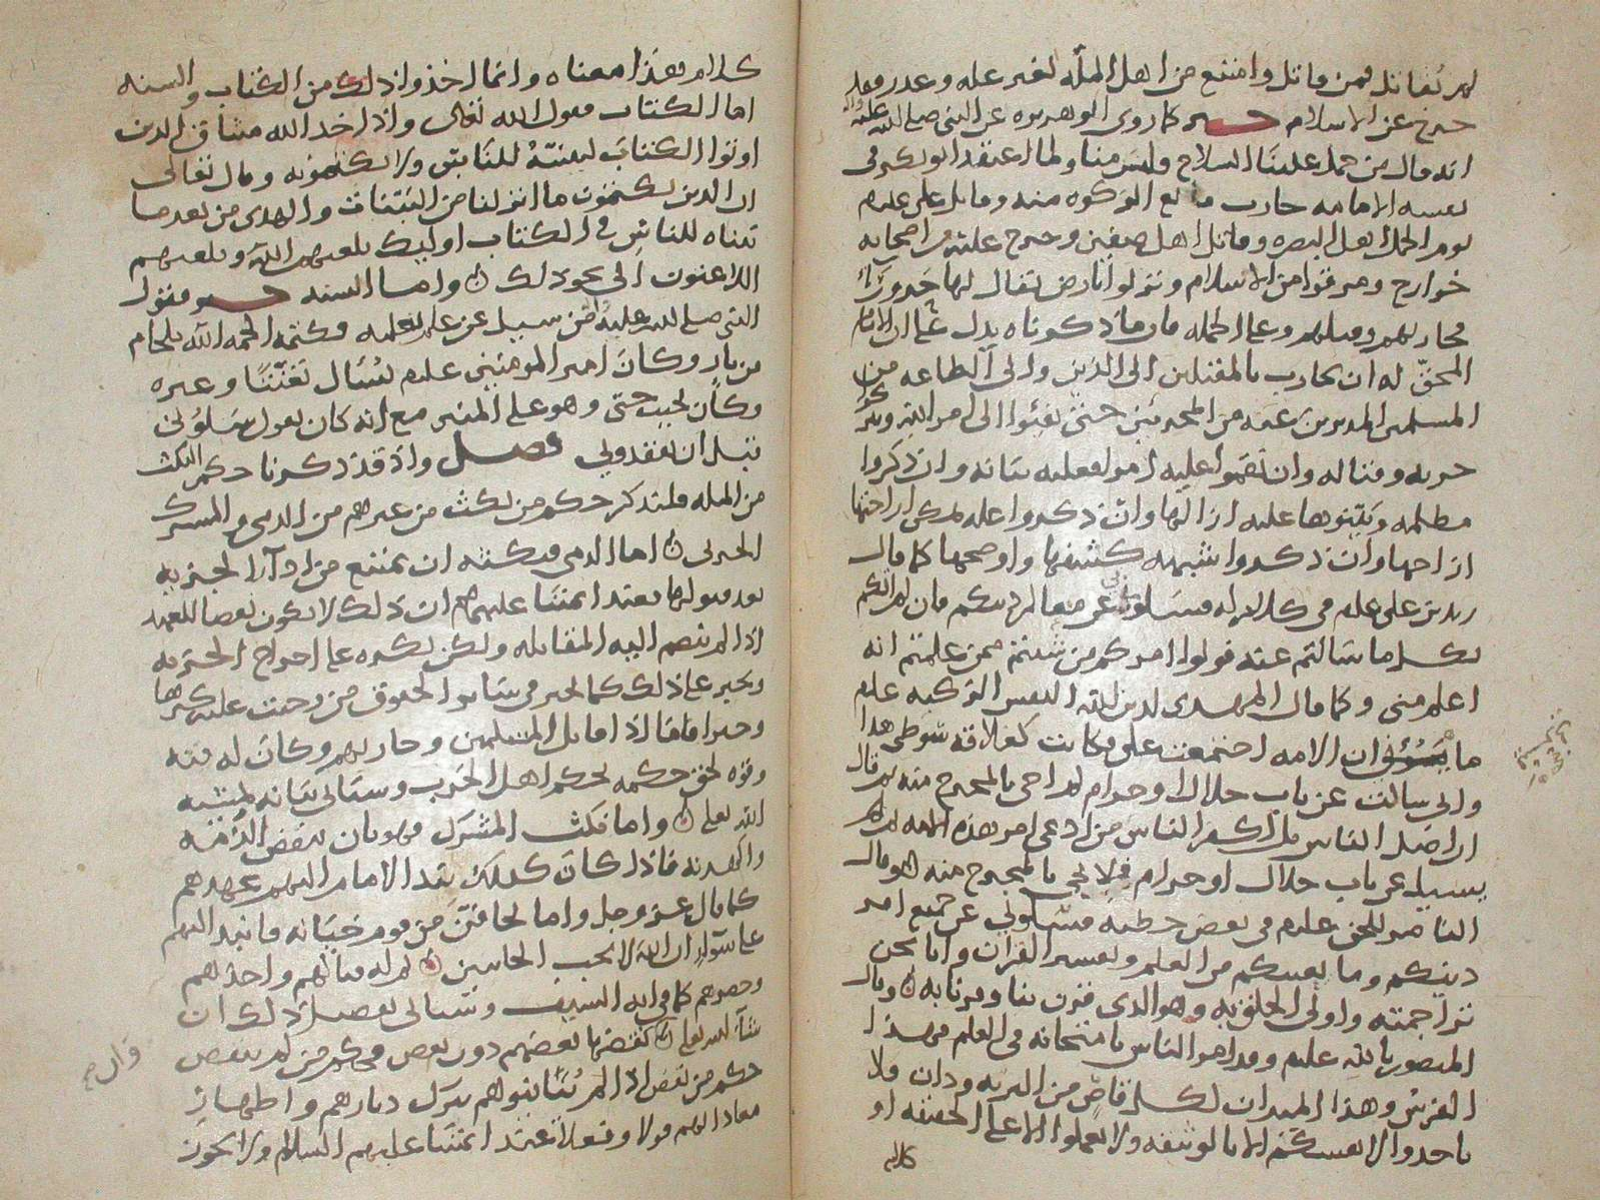 لم نُقاتل فمن قاتل وامتنع من اهل الملّه لغير عله وعدر فقد
خرج عن الاسلام خبر كما روى ابو هريره عن النبى صلى الله عليه واله
انه قال من حمل علينا السلاح فليس منا ولما اعتقد ابو بكر فى
نفسه الامامه حارب مانع الزكوه منه وقاتل على علم
يوم الجمل اهل البصره وقاتل اهل صفين وخرج عليه من اصحابه
خوارج ومرقوا من الاسلام ونزلوا بارض يقال لها حَرورَآء
فحاربهم وقتلهم وعلى الجمله فان ما ذكرناه يدل على ان الامام
المحقّ له ان يحارب بالمقبلين الى الدين والى الطاعه من
المسلمين المدبرين عنه من المحدثين حتى يفيوا الى امر الله
حربه وقتاله وان نقموا عليه امرا فعليه بيانه وان ذكروا
مظلمه وبيّنوها عليه ازالها وان ذكروا عله يمكن ازاحتها
ازاحها وان ذكروا شبهه كشفها واوضحها كما قال
زيد بن على علم فى كلام له فسلونى عن معالم دينكم فان لم انبكم
بكل ما سالتم عنه فولوا امركم من شيتم ممن علمتم انه
اعلم منى وكما قال المهدى لدين الله النفس الزكيه علم
ما يسوونى ان الامه اجتمعت على فكانت كعلاقه سوطى هذا
وانى سالت عن باب حلال او حرام لم اجى بالمخرج منه بم قال
ان اضل الناس بل اكفر الناس من ادعى امر هذه الامه ثم
يسيل عن باب حلال او حرام فلا يجى بالمخرج منه وقال
الناصر للحق علم فى بعض خطبه فسلونى عن جميع امر
دينكم وما يعنيكم من العلم وتفسير القران فانا نحن
تراجمته واولى الخلق به وهو الذى قرن بنا وقرنا به وقال
المنصور بالله علم ومدا هو الناس بامتحانه فى العلم فهذا
الفرس وهذا الميدان لكل قاصٍ من البريه ودان فلا
ياخدوا لانفسكم الا بالوثيقه ولا تعملوا الا على الحقيقه او
كلام
كلام هذا معناه وانما اخذوا ذلك من الكتاب والسنه
اما الكتاب فقول الله تعالى واذ اخذ الله ميثاق الذين
اوتوا الكتابَ ليبيننّهُ للنّاسِ ولا يكتمونه وقال تعالى
ان الذين يكتمون ما انزلنا من البيّنات والهدى من بعد ما
بيناه للناسِ فى الكتاب اوليك يلعنهم الله ويلعنهم
اللاعنون الى نحو ذلك واما السنه خبر فقول
النبى صلى الله عليه من سيل عن علم يعلمه فكتمه الجمه الله بلجام
من نار وكان امير المومنين علم يُسَال تعنتًا وغيره
وكان يجيب حتى وهو على المنبر مع انه كان يقول سَلُونى
قبل ان تفقدونى فصل واذ قد ذكرنا حكم الناكث
من المله فلنذكر حكم من نكث من غيرهم من الذمى والمشرك
الحربى اما الذمى فنكثه ان يمتنع من ادآء الجزيه
بعد قبولها فعند ايمتنا عليهم ان ذلك لا يكون نقضا للعهد
اذا لم ينضم اليه المقاتله ولكن يكره على اخراج الجزيه
ويجبر على ذلك كما يجبر فى سائر الحقوق من وجبت عليه كرها
وجبرا فامّا اذا قاتل المسلمين وحاربهم وكان له فئه
وقوه لحق حكمه بحكم اهل الحَرب وسياتى بيانه بمشيه
الله تعلى واما نكث المشرك فهو بان ينقض الذّمّه
والهدنه فاذا كان كذلك نبذ الامام اليهم عهدهم
كما قال عز وجل واما تخافنّ من قوم خيَانه فانبذ اليهم
على سَوآءٍ ان اللهَ لا يحب الخاينين ثم له قتالهم واخذهم
وحصرهم كما فى ايه السيف وسياتى تفصيل ذلك ان
شآء الله تعلى نقضها بعضهم دون بعض فحكم من لم ينقض
حكم من نقض اذا لم يُبَاينوهم بترك ديارهم واظهار
معاداتهم قولا وفعلا عند ايمتنا عليهم السلام ولا يكون
وان